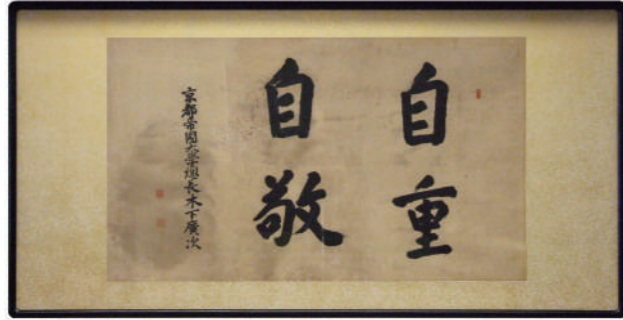 自重
自敬
京都帝国大学總長木下廣次